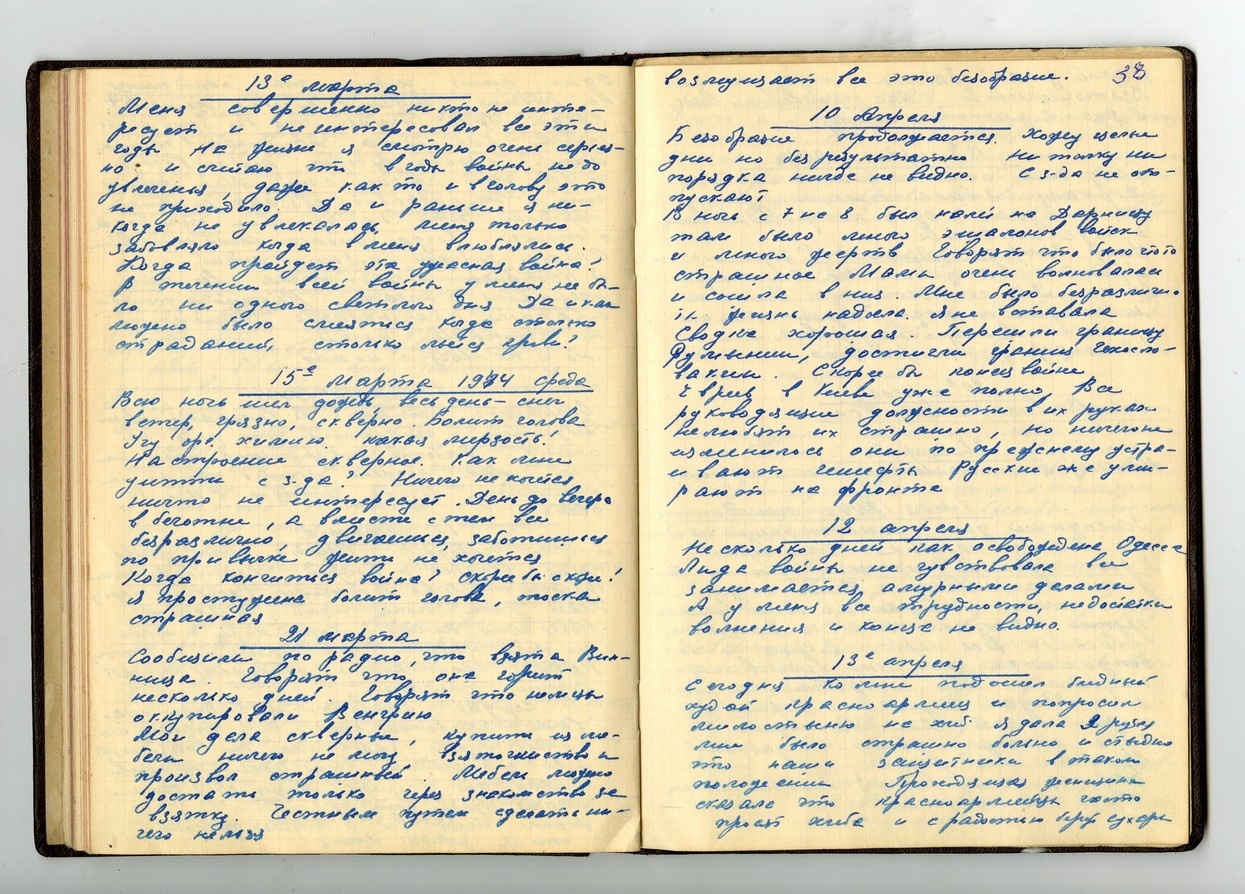 13е марта
Меня совершенно никто не инте-
ресует и не интересовал все эти
годы На жизнь я смотрю очень серьез-
но и считаю что в годы войны не до
увлеченья, даже как то и в голову это
не приходило. Да и раньше я ни-
когда не увлекалась, меня только
забавляло когда в меня влюблялись.
Когда пройдет эта ужасная война!
В течении всей войны у меня не бы-
ло ни одного светлого дня Да и как
можно было смеяться когда столько
страданий, столько льется крови?
15е марта 1944 среда
Всю ночь шел дождь весь день – снег
ветер, грязно, скверно. Болит голова
Учу орг. химию. какая мерзость!
Настроение скверное. Как мне
уйти с з-да? Ничего не хочется
ничто не интересует. День до вечера
в беготне, а вместе с тем все
безразлично, двигаешься, заботишься
по привычке жить не хочется
Когда кончится война? скорее бы скорее!
Я простужена болит голова, тоска
страшная
21 марта
Сообщили по радио, что взята Вин-
ница. Говорят что она горит
несколько дней. Говорят что немцы
оккупировали Венгрию
Мои дела скверные, купить из ме-
бели ничего не могу Взяточничество и
произвол страшный. Мебель можно
достать только через знакомство за
взятку. Честным путем сделать ни-
чего нельзя
возмущает все это безобразие. 38
10 Апреля
Безобразие продолжается. Хожу целые
дни но безрезультатно Ни толку ни
порядка нигде не видно. С з-да не от-
пускают
В ночь с 7 на 8 был налет на Дарницу
там было много эшалонов войск
и много жертв Говорят что было что то
страшное Мама очень волновалась
и сошла в низ. Мне было безразлично.
жизнь надоела. я не вставала
Сводка хорошая. Перешли границу
Румынии, достигли границ Чехосло-
вакии. Скорее бы конец войне
Евреев в Киеве уже полно, Все
руководящие должности в их руках
нелюбят их страшно, но ничего не
изменилось они по прежнему устра-
ивают гешефты Русские же уми-
рают на фронте
12 апреля
Несколько дней как освобождена Одесса
Лида войны не чувствовала все
занимается амурными делами
А у меня все трудности, недостатки
волнения и конца не видно.
13е апреля
Сегодня ко мне подошел бледный
худой красноармеец и попросил
милостыню на хлеб я дала 2 рубл
мне было страшно больно и стыдно
что наши защитники в таком
положении Проходящая женщина
сказала что красноармейцы часто
просят хлеба и с радостью берут сухари